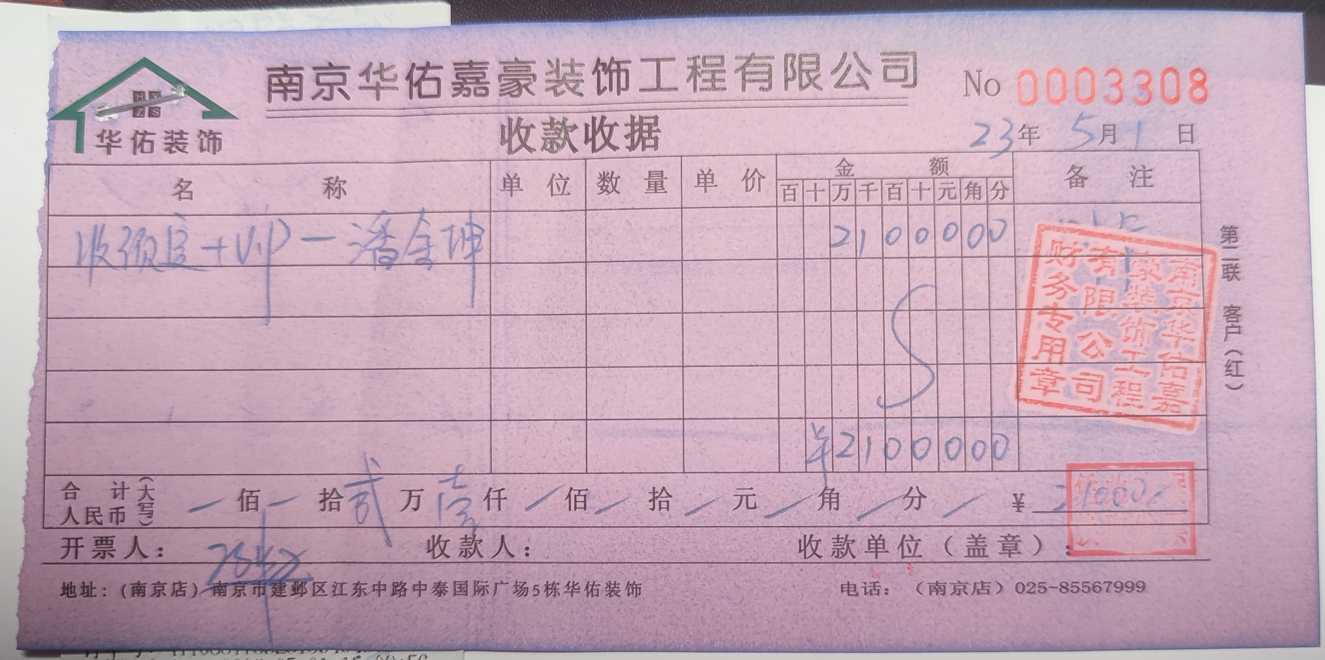 南京华佑嘉豪装饰工程有限公司
No 0003308
华佑装饰
收款收据
23年 5月 1日
名 称 单 位 数 量 单 价 金 额 备 注
百 十 万 千 百 十 元 角 分
收预定+VIP一潘金坤 2100000
¥2100000
合 计 (大写) 人民币 佰 拾 贰 万 壹 仟 佰 拾 元 角 分 ¥ 21000
开票人: 收款人: 收款单位(盖章):
地址:(南京店)南京市建邺区江东中路中泰国际广场5栋华佑装饰 电话:(南京店)025-85567999
第二联 客户(红)
南京华佑嘉豪装饰工程有限公司
财务专用章